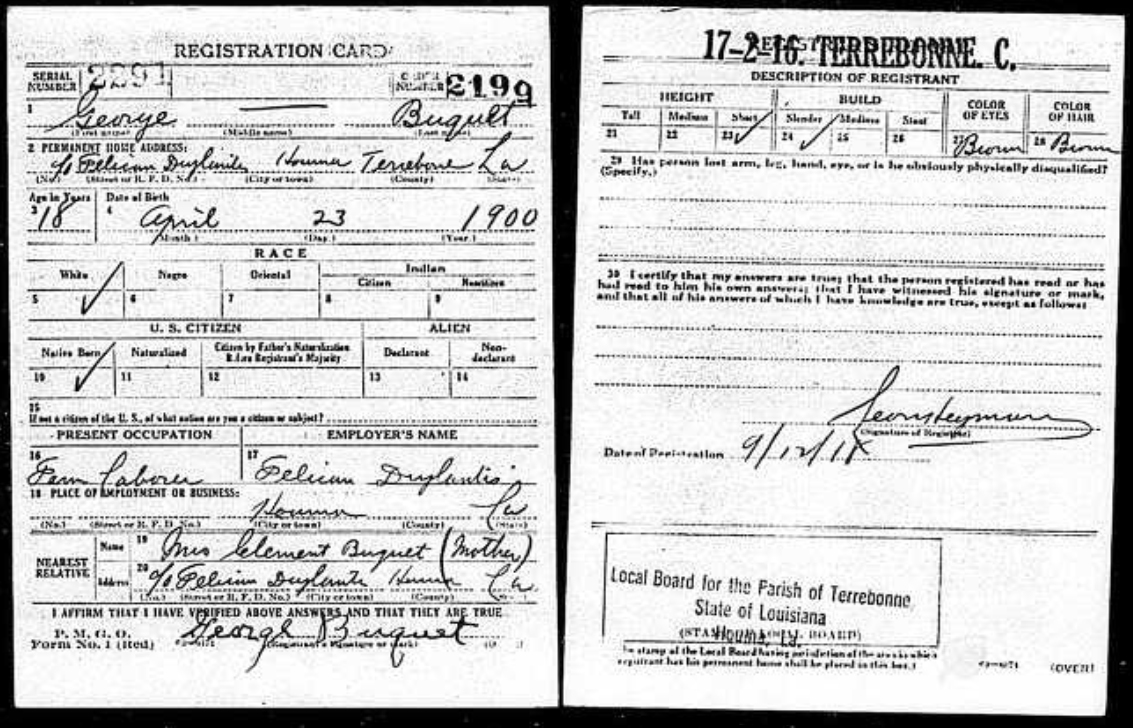 REGISTRATION CARD
SERIAL NUMBER 2291 ORDER NUMBER 2199
1 George Buquet
(First name) (Middle name) (Last name)
2 PERMANENT HOME ADDRESS:
c/o Felician Duplantis Houma Terrebone La
(No.) (Street or R. F. D. No.) (City or town) (County) (State)
Age in Years Date of Birth
3 18 4 April 23 1900
(Month.) (Day.) (Year.)
RACE
White Negro Oriental Indian
Citizen Noncitizen
5 ✓ 6 7 8 9
U. S. CITIZEN ALIEN
Native Born Naturalized Citizen by Father's Naturalization Before Registrant's Majority Declarant Non-declarant
10 ✓ 11 12 13 14
15
If not a citizen of the U. S., of what nation are you a citizen or subject?
PRESENT OCCUPATION EMPLOYER'S NAME
16 Farm Laborer 17 Felician Duplantis
18 PLACE OF EMPLOYMENT OR BUSINESS:
Houma La
(No.) (Street or R. F. D. No.) (City or town) (County) (State)
NEAREST RELATIVE Name 19 Mrs Clement Buquet (Mother)
Address 20 c/o Felician Duplantis Houma La
(No.) (Street or R. F. D. No.) (City or town) (County) (State)
I AFFIRM THAT I HAVE VERIFIED ABOVE ANSWERS AND THAT THEY ARE TRUE
P. M. G. O.
Form No. 1 (Red) George Buquet
(Registrant's signature or mark)
17-2-16. TERREBONNE. C.
DESCRIPTION OF REGISTRANT
HEIGHT BUILD COLOR OF EYES COLOR OF HAIR
Tall Medium Short Slender Medium Stout
21 22 23 ✓ 24 ✓ 25 26 27 Brown 28 Brown
29 Has person lost arm, leg, hand, eye, or is he obviously physically disqualified?
(Specify.)
30 I certify that my answers are true; that the person registered has read or has
had read to him his own answers; that I have witnessed his signature or mark,
and that all of his answers of which I have knowledge are true, except as follows:
(Signature of Registrar)
Date of Registration 9/12/18
Local Board for the Parish of Terrebonne
State of Louisiana
Houma, La.
(STAMP OF LOCAL BOARD)
(The stamp of the Local Board having jurisdiction of the area in which
registrant has his permanent home shall be placed in this box.)
(OVER)